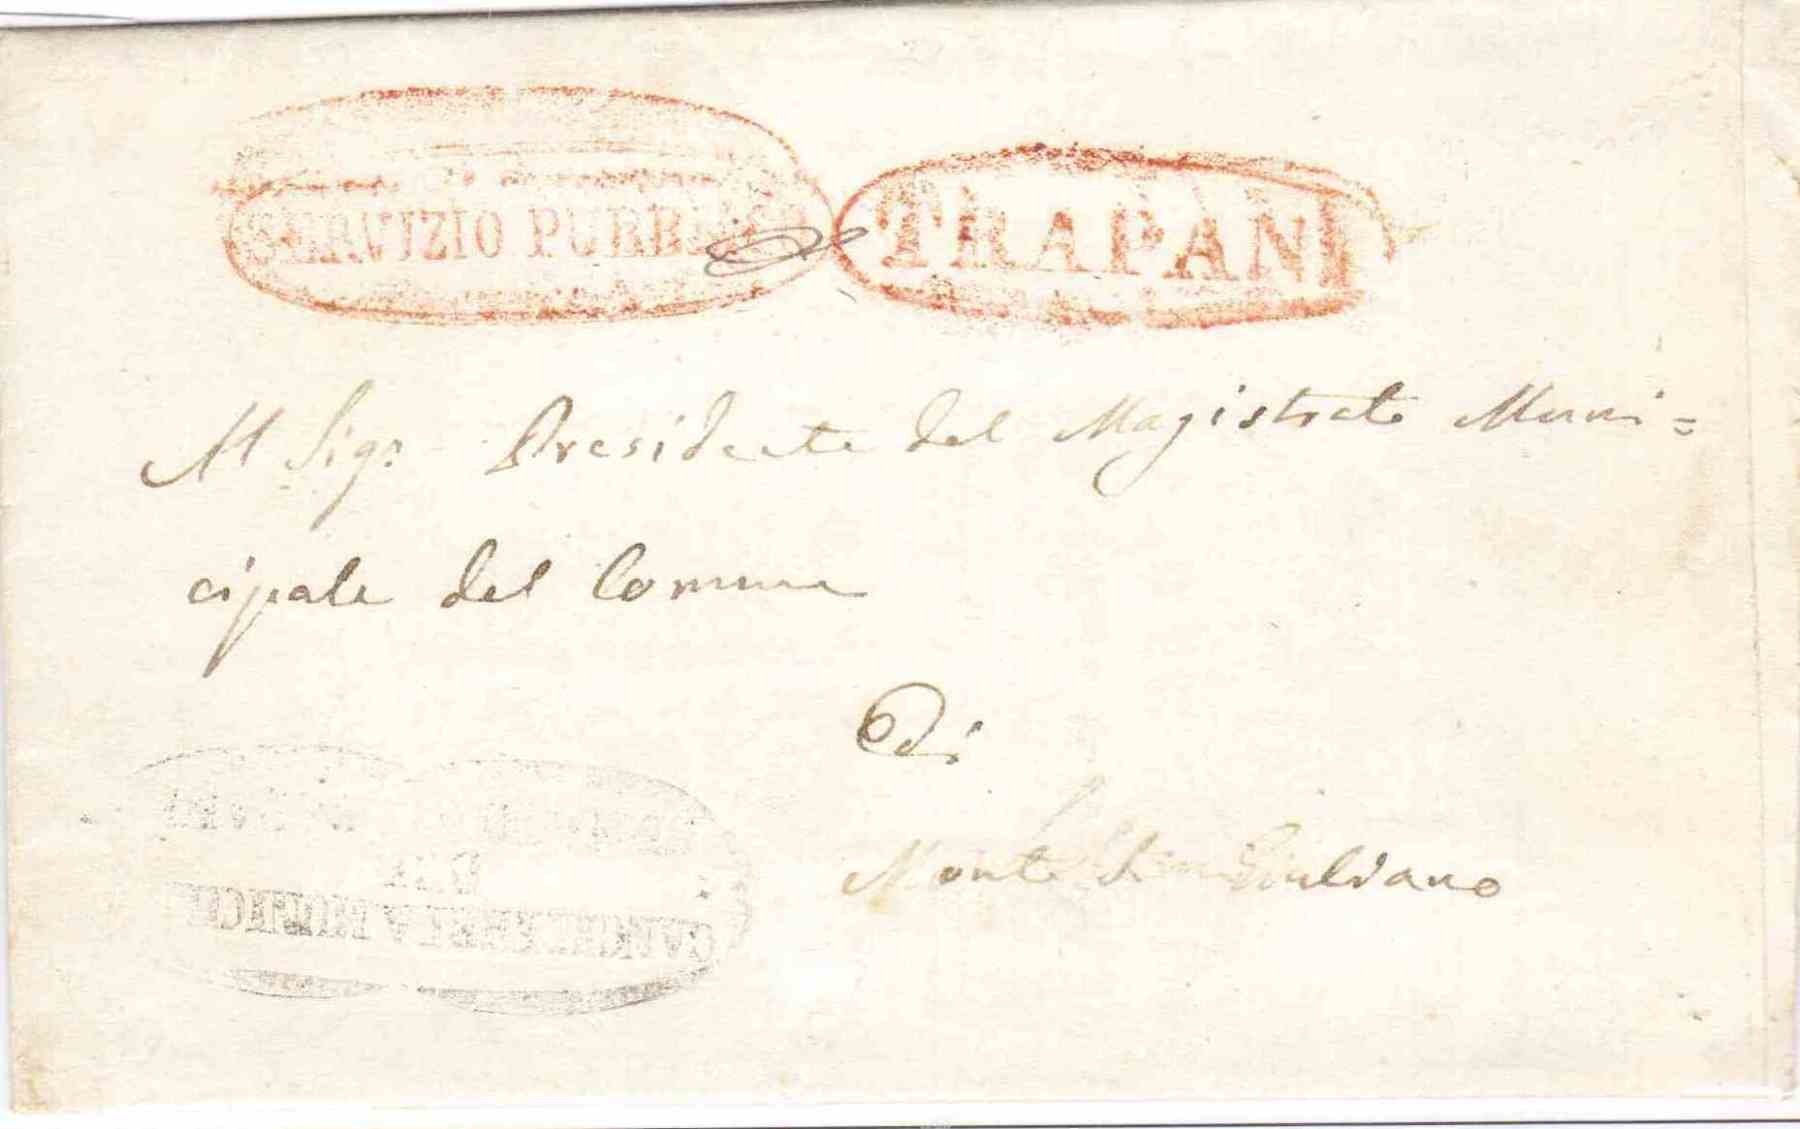 SERVIZIO PUBBLICO
TRAPANI
Al Sigr Presidente del Magistrato Muni=
cipale del Comune
Di
Monte San Giuliano